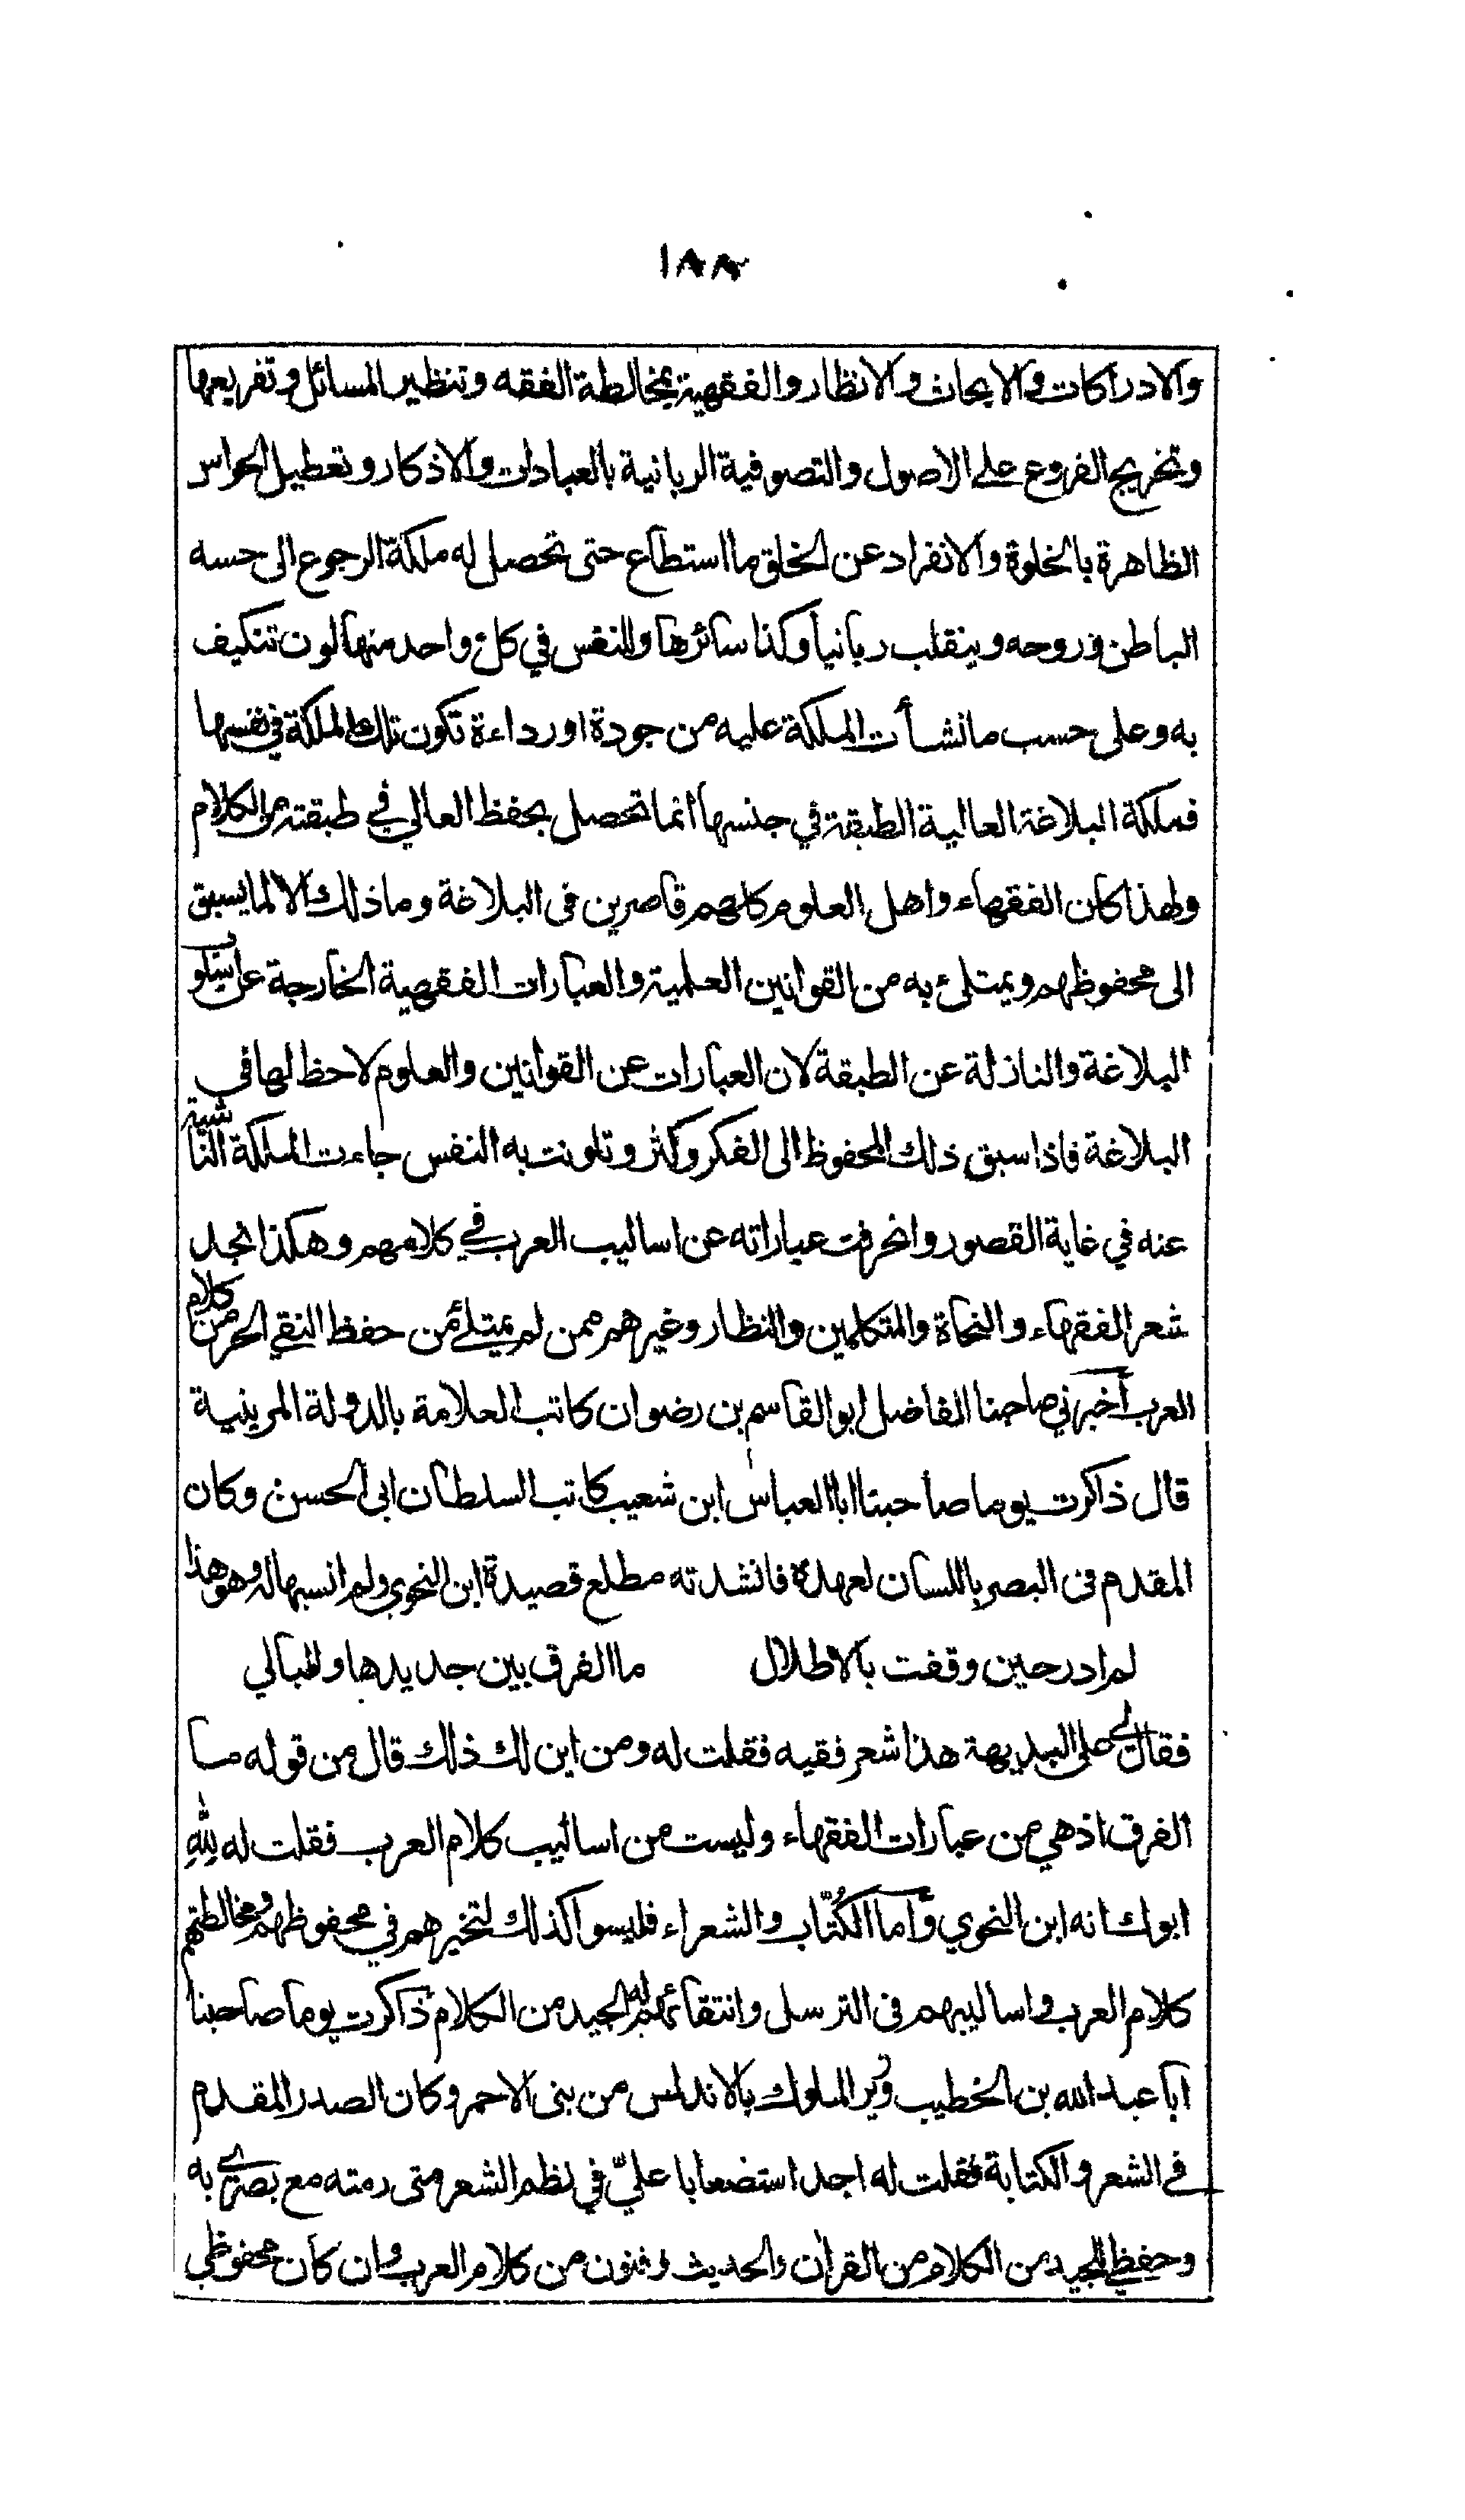 ١٨٨
والادراكات والابحاث والانظار والفقهية بمخالطة الفقه وتنظير المسائل وتفريعها
وتخريج الفروع على الاصول والتصوفية الربانية بالعبادات والاذكار وتعطيل الحواس
الظاهرة بالخلوة والانفراد عن الخلق ما استطاع حتى تحصل له ملكة الرجوع الى حسه
الباطن وروحه وينقلب ربانيا وكذا سائرها وللنفس في كل واحد منها لون تتكيف
به وعلى حسب ما نشأت الملكة عليه من جودة او رداءة تكون تلك الملكة في نفسها
فملكة البلاغة العالية الطبقة في جنسها انما تحصل بحفظ العالي في طبقته من الكلام
ولهذا كان الفقهاء واهل العلوم كلهم قاصرين فى البلاغة وما ذلك الا لما يسبق
الى محفوظهم ويمتلئ به من القوانين العلمية والعبارات الفقهية الخارجة عن اسلوب
البلاغة والنازلة عن الطبقة لان العبارات عن القوانين والعلوم لاحظ لها في
البلاغة فاذا سبق ذلك المحفوظ الى الفكر وكثر وتلونت به النفس جاءت الملكة الناشية
عنه في غاية القصور وانحرفت عباراته عن اساليب العرب في كلامهم وهكذا نجد
شعر الفقهاء والنحاة والمتكلمين والنظار وغيرهم ممن لم يمتلئ من حفظ النقي الحر من كلام
العرب أخبرني صاحبنا الفاضل ابو القاسم بن رضوان كاتب العلامة بالدولة المرينية
قال ذاكرت يوما صاحبنا ابا العباس ابن شعيب كاتب السلطان ابى الحسن وكان
المقدم فى البصر باللسان لعهده فانشدته مطلع قصيدة ابن النحوي ولم انسبها له وهو هذا
لم ادر حين وقفت بالاطلال ما الفرق بين جديدها والبالي
فقال لي على البديهة هذا شعر فقيه فقلت له ومن اين لك ذلك قال من قوله ما
الفرق اذ هي من عبارات الفقهاء وليست من اساليب كلام العرب فقلت له لله
ابوك انه ابن النحوي وأما الكُتّاب والشعراء فليسوا كذلك لتخيرهم في محفوظهم ومخالطتهم
كلام العرب واساليبهم فى الترسل وانتقائهم له الجيد من الكلام ذاكرت يوما صاحبنا
ابا عبد الله بن الخطيب وزير الملوك بالاندلس من بنى الاحمر وكان الصدر المقدم
في الشعر والكتابة فقلت له اجد استضعابا عليّ في نظم الشعر متى رمته مع بصري به
وحفظي الجيد من الكلام من القرآن والحديث وفنون من كلام العرب وان كان محفوظي